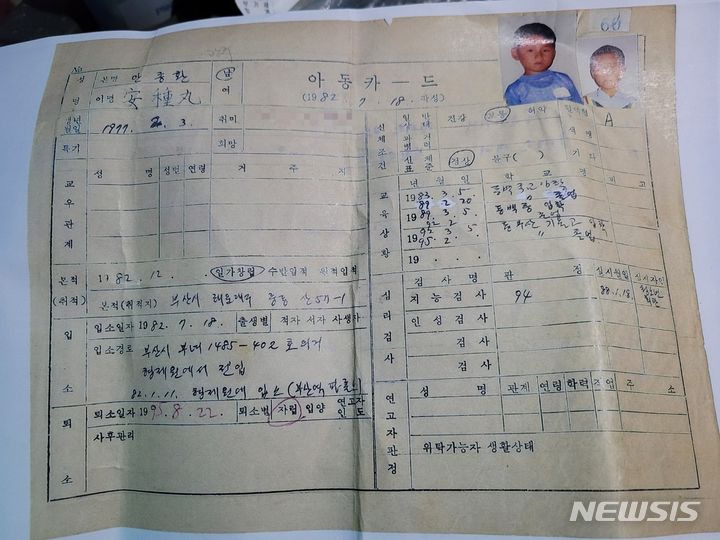 No
성 본명 안종환 남
명 이명 安種丸 여
아동카드
(1982. 7. 18. 작성)
68
생년월일 1977. 2. 3. 취미
특기 희망
신체조건
일반상태 건강 보통 허약 혈액형 A
과거병력 색맹
신체제준 정상 분구( ) 기타
교우관계
성명 성별 연령 거주지
교육상황
년월일 학교명 비고
1983. 3. 5
89. 2. 20 졸업
1989. 3. 5 동백중 입학
92. 2 졸업
1993. 3. 5
95. 2 〃 졸업
19 . .
본적 1982. 12. . 일가창립 수반입적 원적입적
(취적) 본적(취적지) 부산시 해운대구 중동 산 57-1
입소
입소일자 1982. 7. 18. 출생별 적자 서자 사생자
입소경로 부산시 북구 1485-402 호의거
형제원에서 전입
82. 1. 11. 형제원에 입소 (부산역
퇴소
퇴소일자 1995. 8. 22. 퇴소별 자립 입양 연고자인도
사후관리
심리검사
검사명 판정 실시월일 실시자인
지능검사 94 88. 1. 18.
인성검사
검사
검사
연고자
성명 관계 연령 학력 직업 주소
판정
위탁가능자 생활상태
NEWSIS